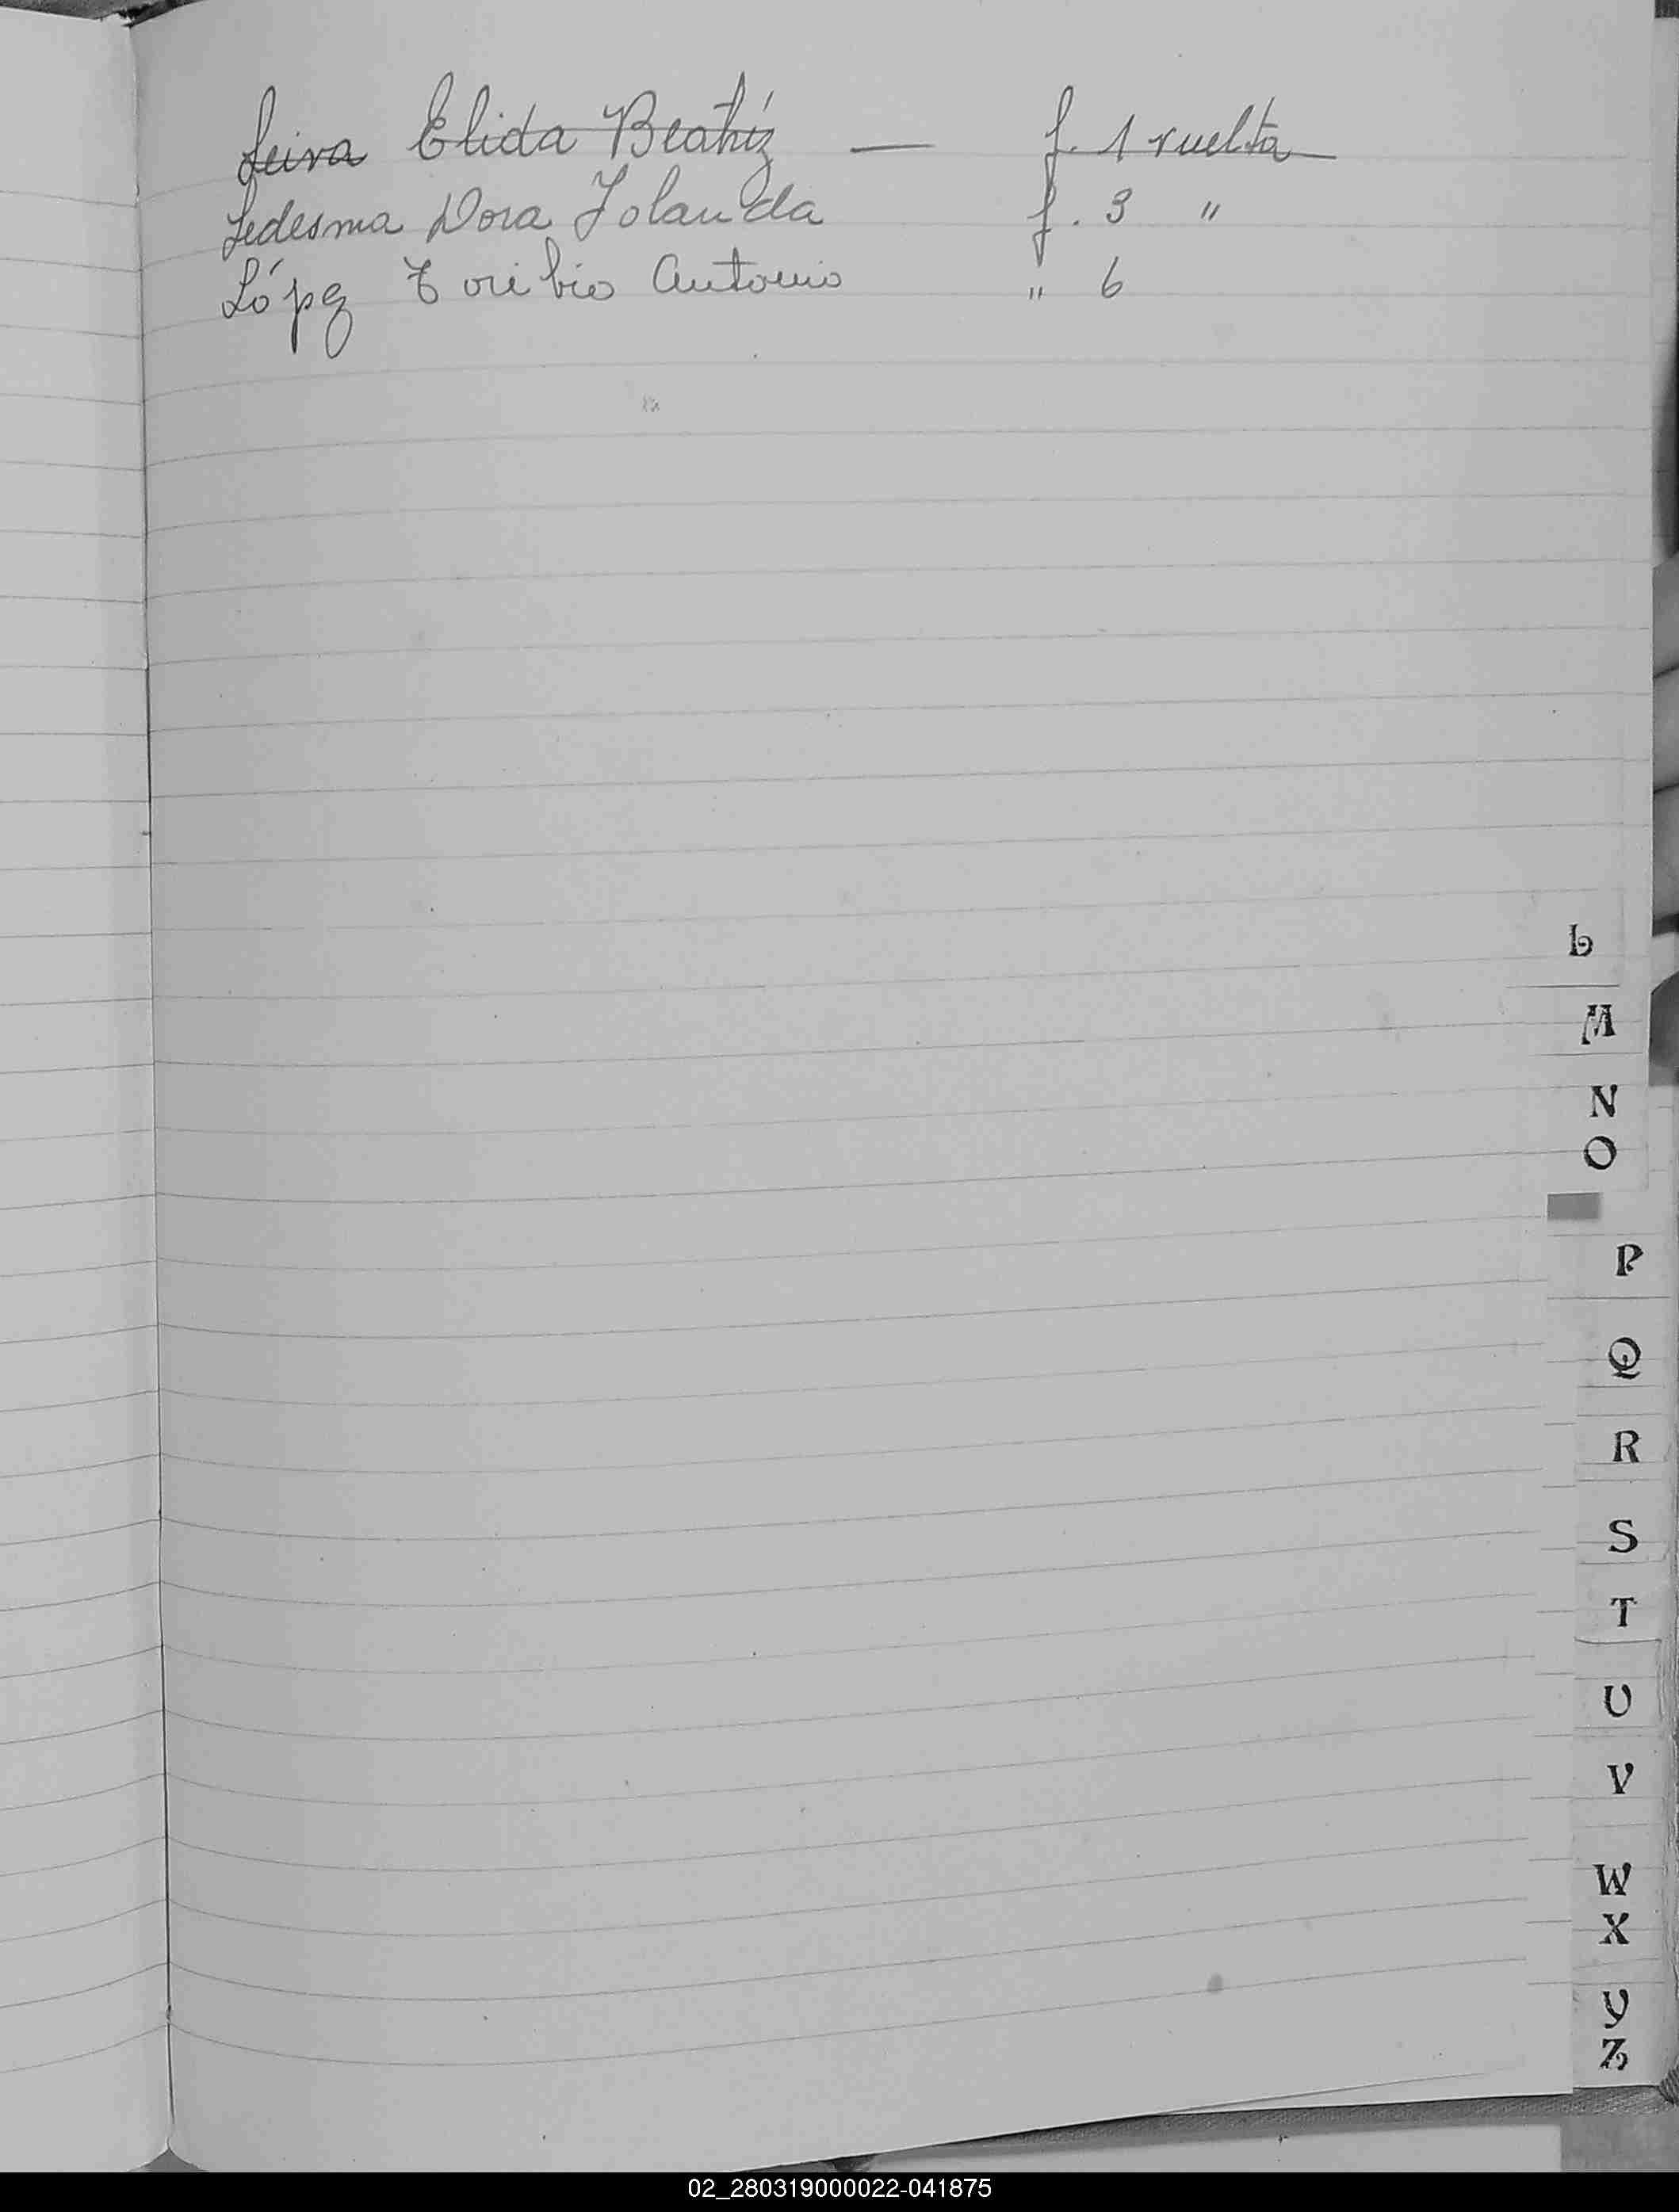 Leiva Elida Beatríz — f. 1 vuelta
Ledesma Dora Iolanda f. 3 "
López Toribio Antonio " 6
L
M
N
O
P
Q
R
S
T
U
V
W
X
Y
Z
02_280319000022-041875